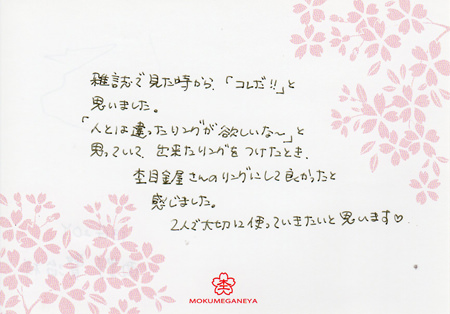 雑誌で見た時から、「コレだ!!」と
思いました。
「人とは違ったリングが欲しいな〜」と
思っていて、出来たリングをつけたとき、
杢目金屋さんのリングにして良かったと
感じました。
2人で大切に使っていきたいと思います♡.
MOKUMEGANEYA